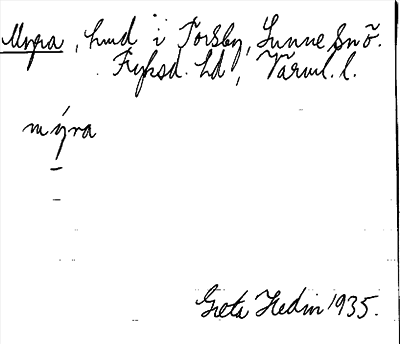 Myra, hmd i Torsby, Sunne sn ö.
Fryksd. hd, Värml. l.
mýra
Greta Hedin 1935.